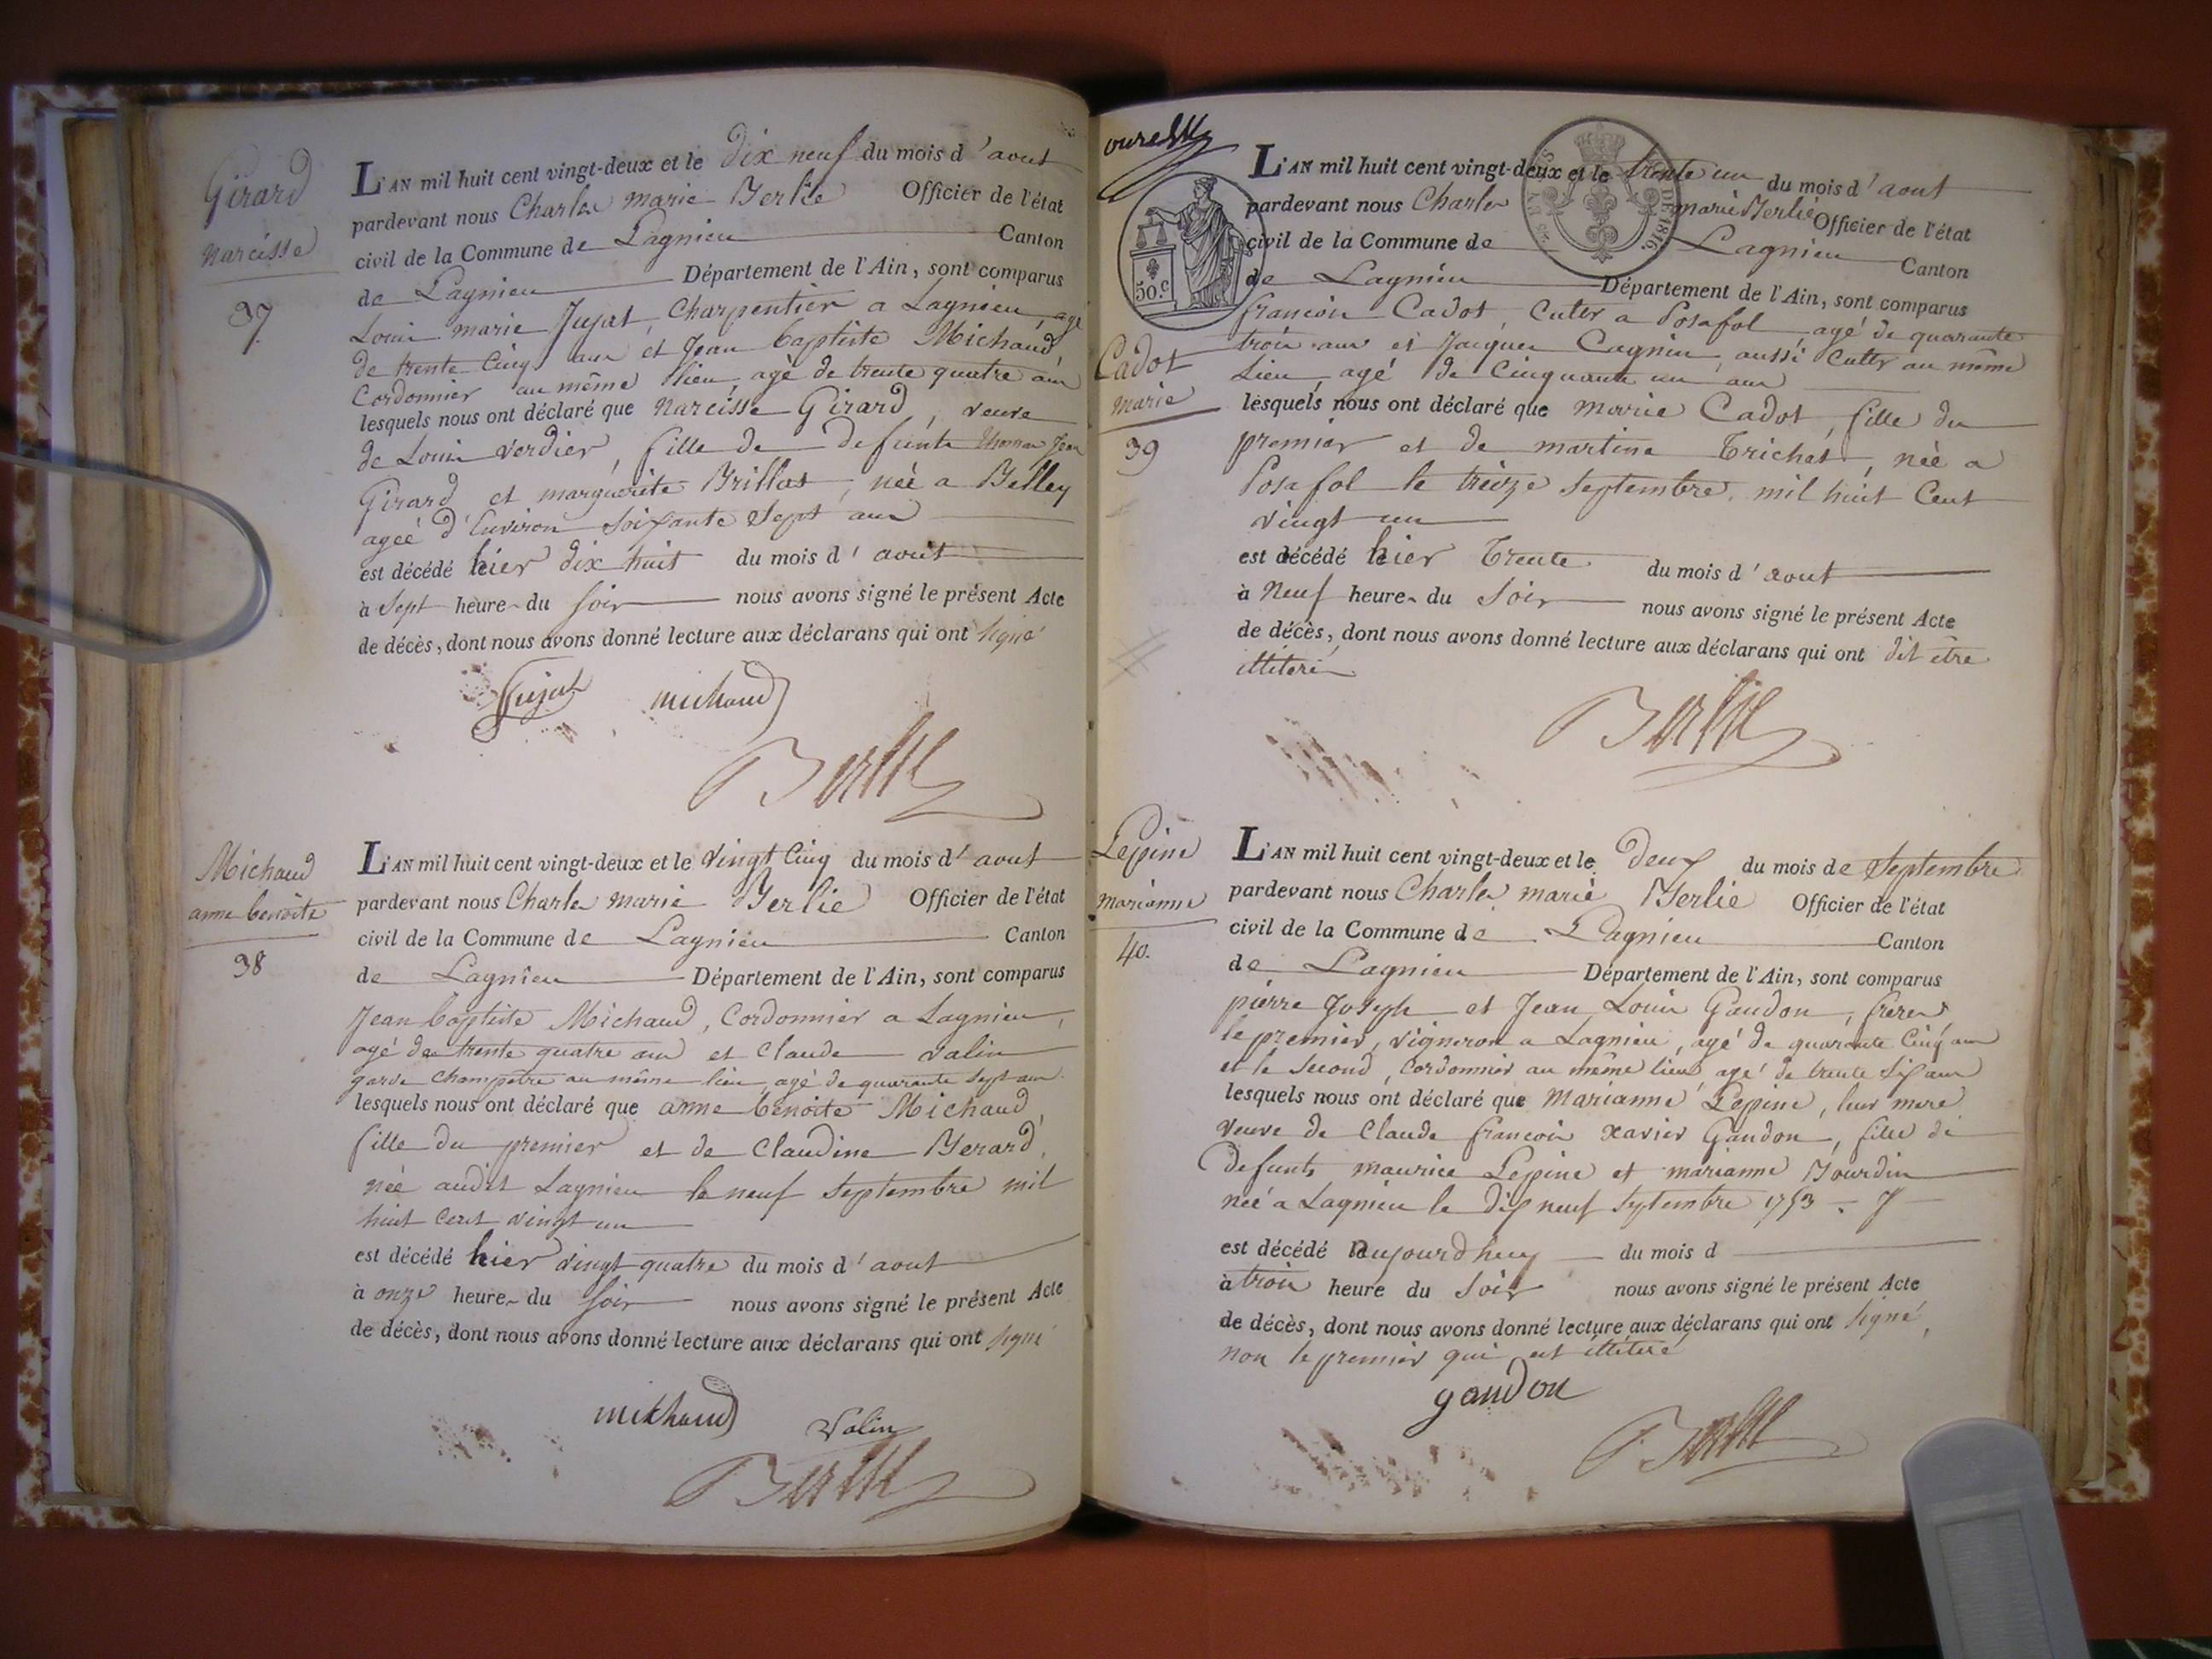 Girard
narcisse
37
L'AN mil huit cent vingt-deux et le dix neuf du mois d'aout
pardevant nous Charles marie Berlie Officier de l'état
civil de la Commune de Lagnieu Canton
de Lagnieu Département de l'Ain, sont comparus
Louis marie Jujat, Charpentier a Lagnieu, agé
de trente Cinq ans et Jean baptiste Michaud,
Cordonnier au même lieu, agé de trente quatre ans
lesquels nous ont déclaré que narcisse Girard, veuve
de Louis Verdier, fille de defunts thomas Jean
Girard et marguerite Brillat, néé a Belley
agéé d'Environ soixante Sept ans
est décédé hier dix huit du mois d'aout
à Sept heures du soir nous avons signé le présent Acte
de décès, dont nous avons donné lecture aux déclarans qui ont signé
Jujat michaud
Berlie
Michaud
anne benoite
38
L'AN mil huit cent vingt-deux et le Vingt Cinq du mois d'aout
pardevant nous Charles marie Berlie Officier de l'état
civil de la Commune de Lagnieu Canton
de Lagnieu Département de l'Ain, sont comparus
Jean baptiste Michaud, Cordonnier a Lagnieu,
agé de trente quatre ans et Claude Valin
garde Champetre au même lieu, agé de quarante Sept ans
lesquels nous ont déclaré que anne benoite Michaud,
fille du premier et de Claudine Berard,
née audit Lagnieu le neuf Septembre mil
huit Cent vingt un
est décédé hier vingt quatre du mois d'aout
à onze heures du soir nous avons signé le présent Acte
de décès, dont nous avons donné lecture aux déclarans qui ont signé
michaud Valin
Berlie
50.c
DE 1816.
Cadot
marie
39
L'AN mil huit cent vingt-deux et le trente un du mois d'aout
pardevant nous Charles marie Berlie Officier de l'état
civil de la Commune de Lagnieu Canton
de Lagnieu Département de l'Ain, sont comparus
francois Cadot, Cultr a Posafol, agé de quarante
trois ans et Jacques Cagnin, aussi Cultr au même
Lieu, agé de Cinquante un ans
lesquels nous ont déclaré que marie Cadot, fille du
premier et de martine Trichat, néé a
Posafol le treize Septembre mil huit Cent
vingt un
est décédé hier Trente du mois d'aout
à Neuf heures du Soir nous avons signé le présent Acte
de décès, dont nous avons donné lecture aux déclarans qui ont dit être
illiteré
Berlie
Lepine
marianne
40.
L'AN mil huit cent vingt-deux et le Deux du mois de Septembre
pardevant nous Charles marie Berlie Officier de l'état
civil de la Commune de Lagnieu Canton
de Lagnieu Département de l'Ain, sont comparus
pierre Joseph et Jean Louis Gaudon, freres
le premier, vigneron a Lagnieu, agé de quarante Cinq ans
et le Second, Cordonnier au même lieu agé de trente Six ans
lesquels nous ont déclaré que Marianne Lepine, leur mere
veuve de Claude francois Xavier Gaudon, fille de
Defunts maurice Lepine et marianne Bourdin
néé a Lagnieu le dix neuf Septembre 1753
est décédé aujourdhuy du mois d
à trois heure du Soir nous avons signé le présent Acte
de décès, dont nous avons donné lecture aux déclarans qui ont signé,
non le premier qui est illiteré
gaudon
Berlie